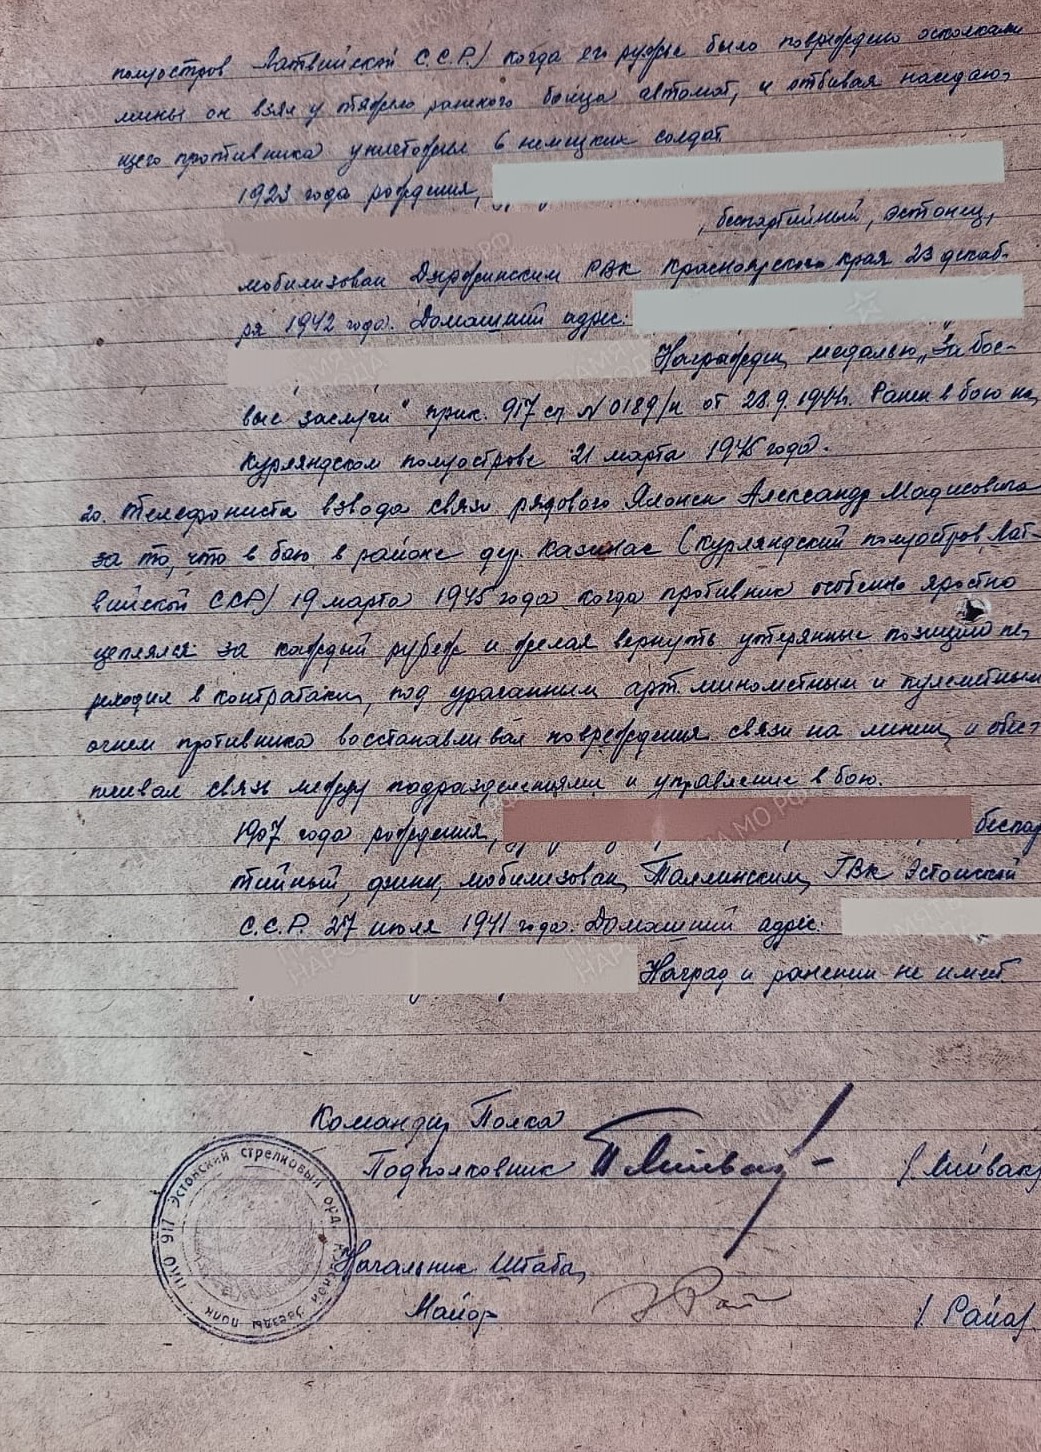 полуостров Латвийской С.С.Р./ когда его ружье было повреждено осколками
мины он взял у тяжело раненого бойца автомат, и отбивая наседаю-
щего противника уничтожил 6 немецких солдат
1923 года рождения,
, беспартийный, эстонец,
мобилизован Дзержинским РВК Красноярского края 23 декаб-
ря 1942 года. Домашний адрес:
Награжден медалью „За бое-
вые заслуги“ прик. 917 сп N 0189/н от 28.9.1944г. Ранен в бою на
Курляндском полуострове 21 марта 1945 года.
20. Телефониста взвода связи рядового Александр Мадисовича
за то, что в бою в районе дер. Казинас (Курляндский полуостров Лат-
вийской ССР/ 19 марта 1945 года когда противник особенно яростно
цеплялся за каждый рубеж и желая вернуть утерянные позиции пе-
реходил в контратаки, под ураганным арт. минометным и пулеметным
огнем противника восстанавливал повреждения связи на линии, и обес-
печивал связь между подразделениями и управление в бою.
1907 года рождения, беспар
тийный, мобилизован Таллинским ГВК Эстонской
С.С.Р. 27 июля 1941 года. Домашний адрес:
Наград и ранении не имеет.
Командир Полка
Подполковник /Лийвак/
917 Эстонский стрелковый орд. Красной Звезды полк
Начальник Штаба
Майор